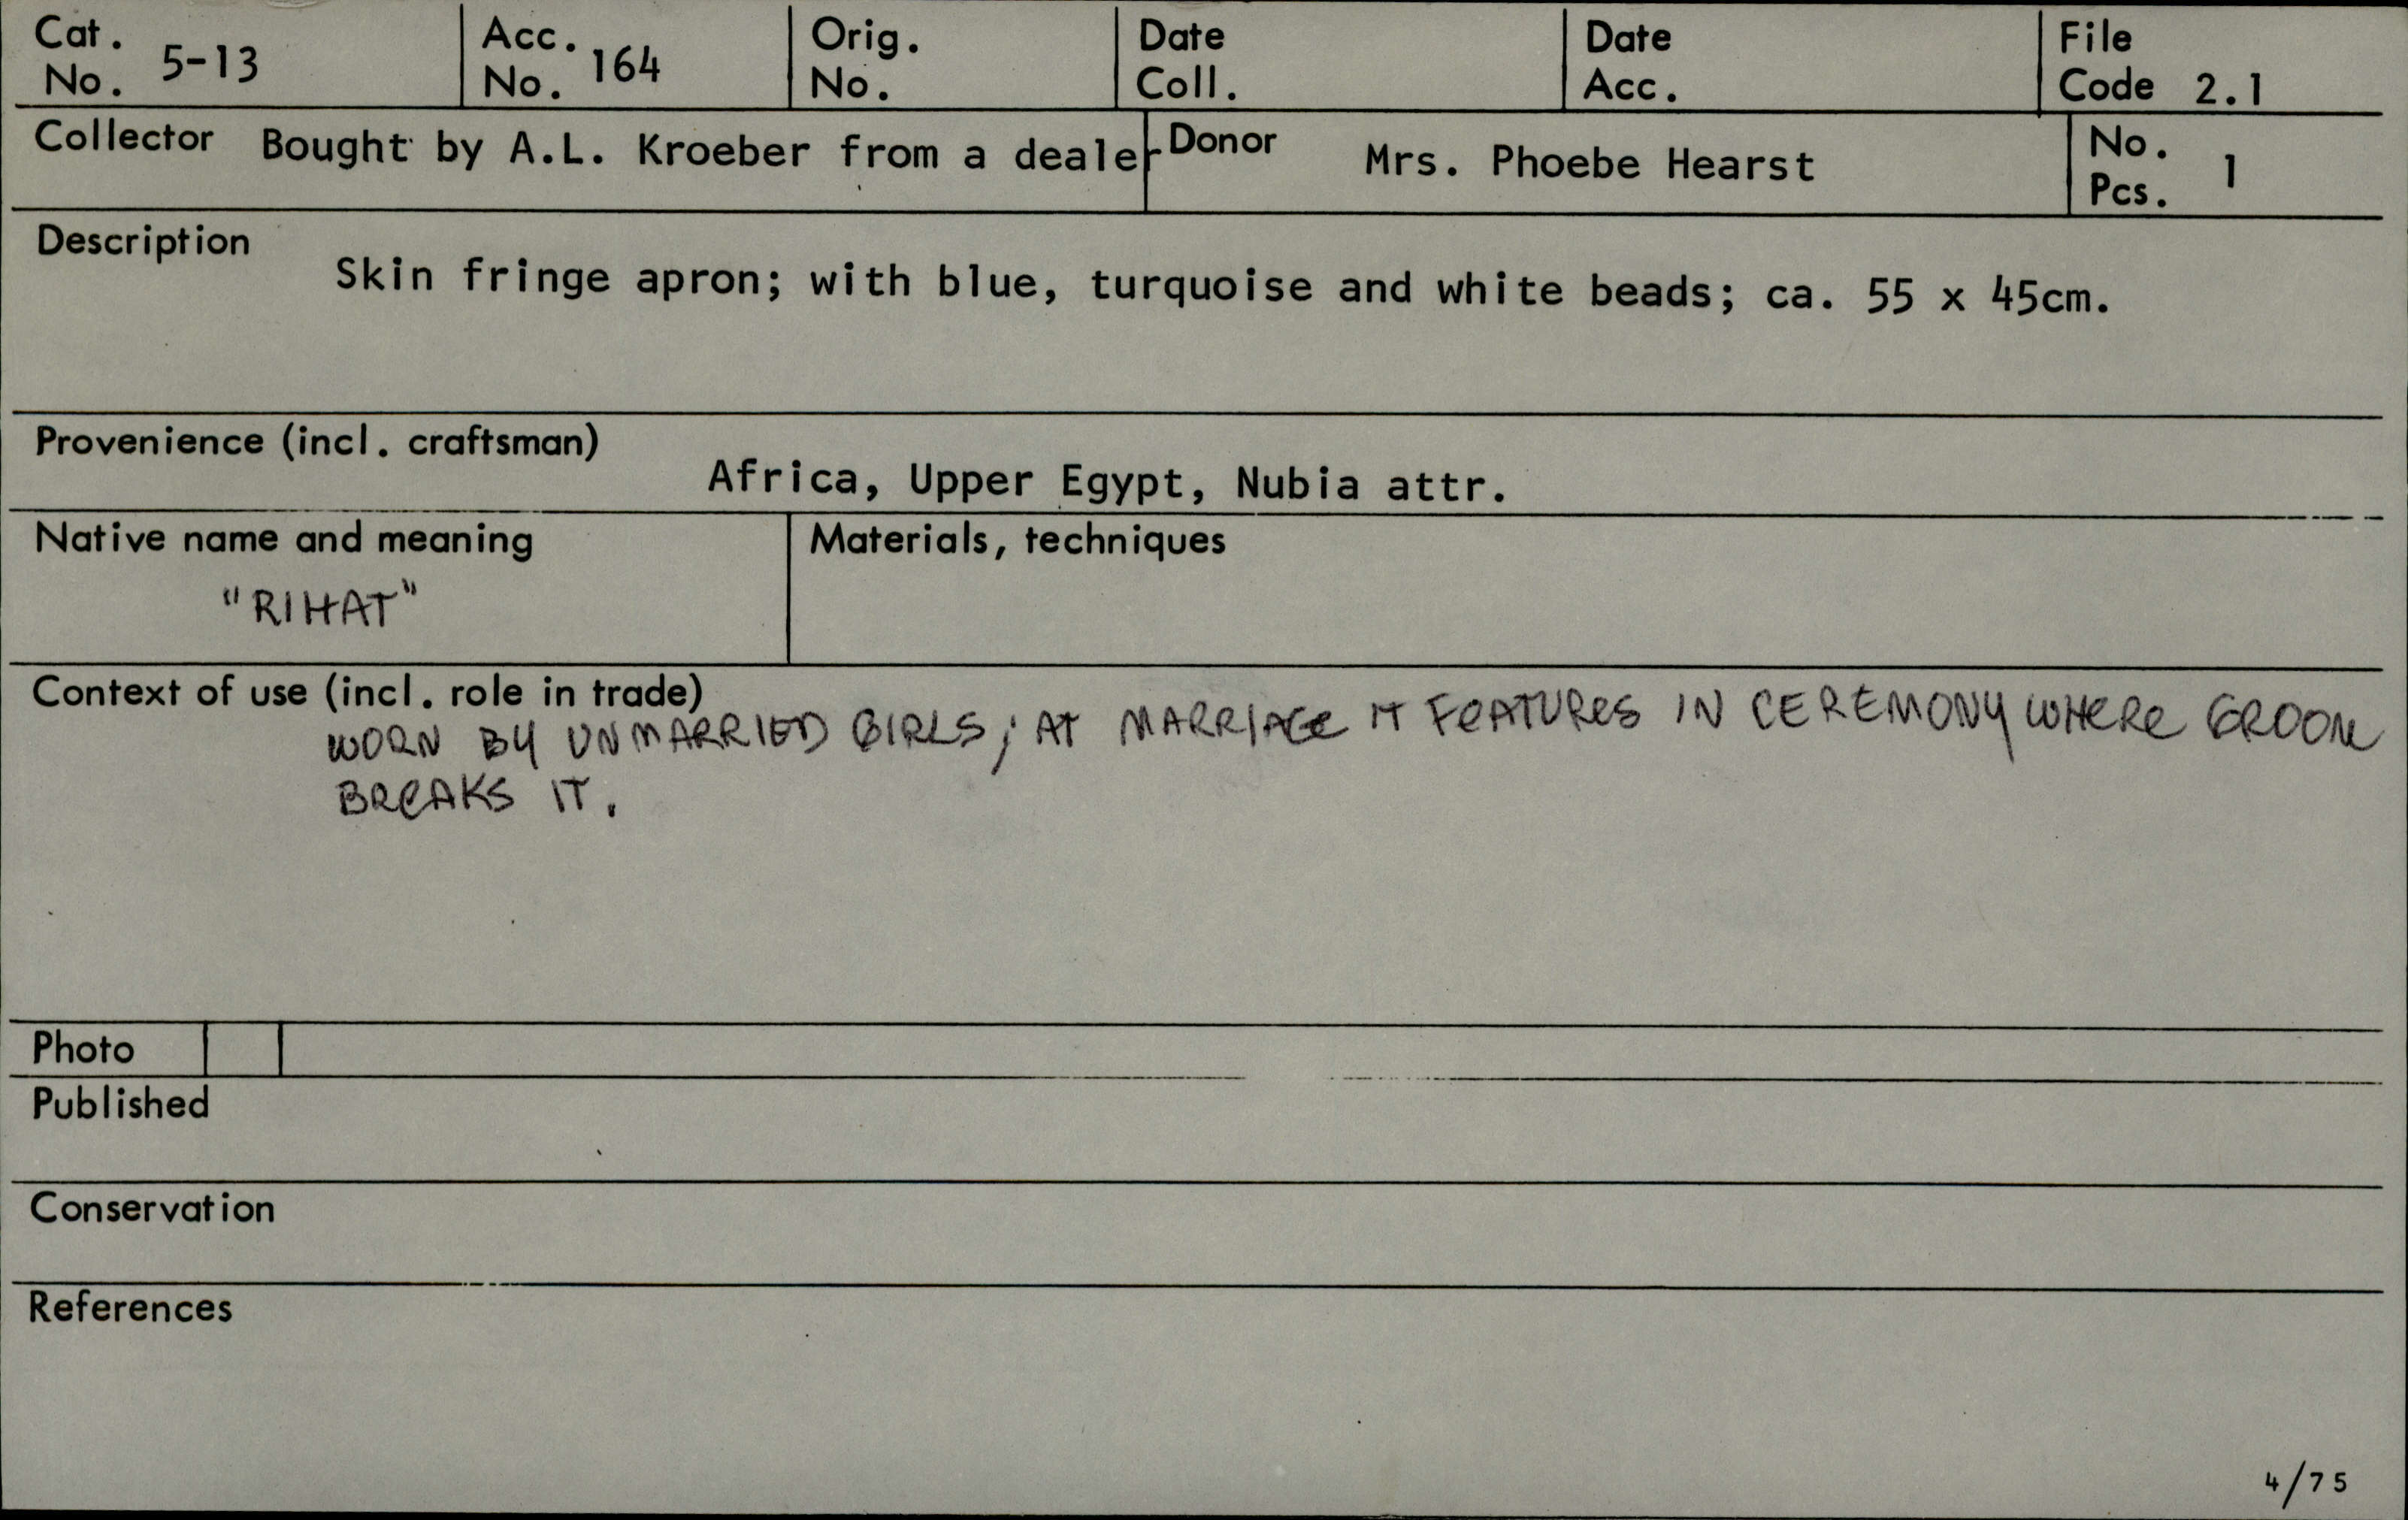 Cat. No. 5-13 Acc. No. 164 Orig. No. Date Coll. Date Acc. File Code 2.1
Collector Bought by A.L. Kroeber from a dealer Donor Mrs. Phoebe Hearst No. Pcs. 1
Description
Skin fringe apron; with blue, turquoise and white beads; ca. 55 x 45cm.
Provenience (incl. craftsman)
Africa, Upper Egypt, Nubia attr.
Native name and meaning Materials, techniques
"RIHAT"
Context of use (incl. role in trade)
WORN BY UNMARRIED GIRLS; AT MARRIAGE IT FEATURES IN CEREMONY WHERE GROOM
BREAKS IT.
Photo
Published
Conservation
References
4/75